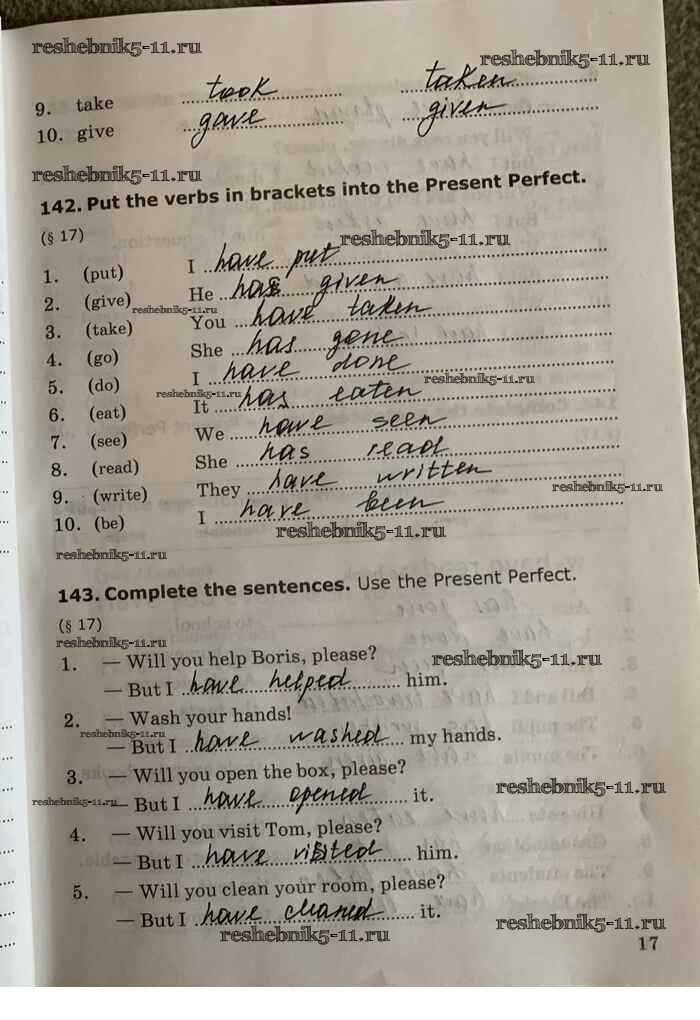 reshebnik5-11.ru
reshebnik5-11.ru
9. take took taken
10. give gave given
reshebnik5-11.ru
142. Put the verbs in brackets into the Present Perfect.
(§ 17)
reshebnik5-11.ru
1. (put) I have put
2. (give) He has given
reshebnik5-11.ru
3. (take) You have taken
4. (go) She has gone
5. (do) I have done
reshebnik5-11.ru
reshebnik5-11.ru
6. (eat) It has eaten
7. (see) We have seen
8. (read) She has read
9. (write) They have written
reshebnik5-11.ru
10. (be) I have been
reshebnik5-11.ru
reshebnik5-11.ru
143. Complete the sentences. Use the Present Perfect.
(§ 17)
reshebnik5-11.ru
1. — Will you help Boris, please?
reshebnik5-11.ru
— But I have helped him.
2. — Wash your hands!
reshebnik5-11.ru
— But I have washed my hands.
3. — Will you open the box, please?
reshebnik5-11.ru
reshebnik5-11.ru
— But I have opened it.
4. — Will you visit Tom, please?
— But I have visited him.
5. — Will you clean your room, please?
— But I have cleaned it.
reshebnik5-11.ru
reshebnik5-11.ru
17